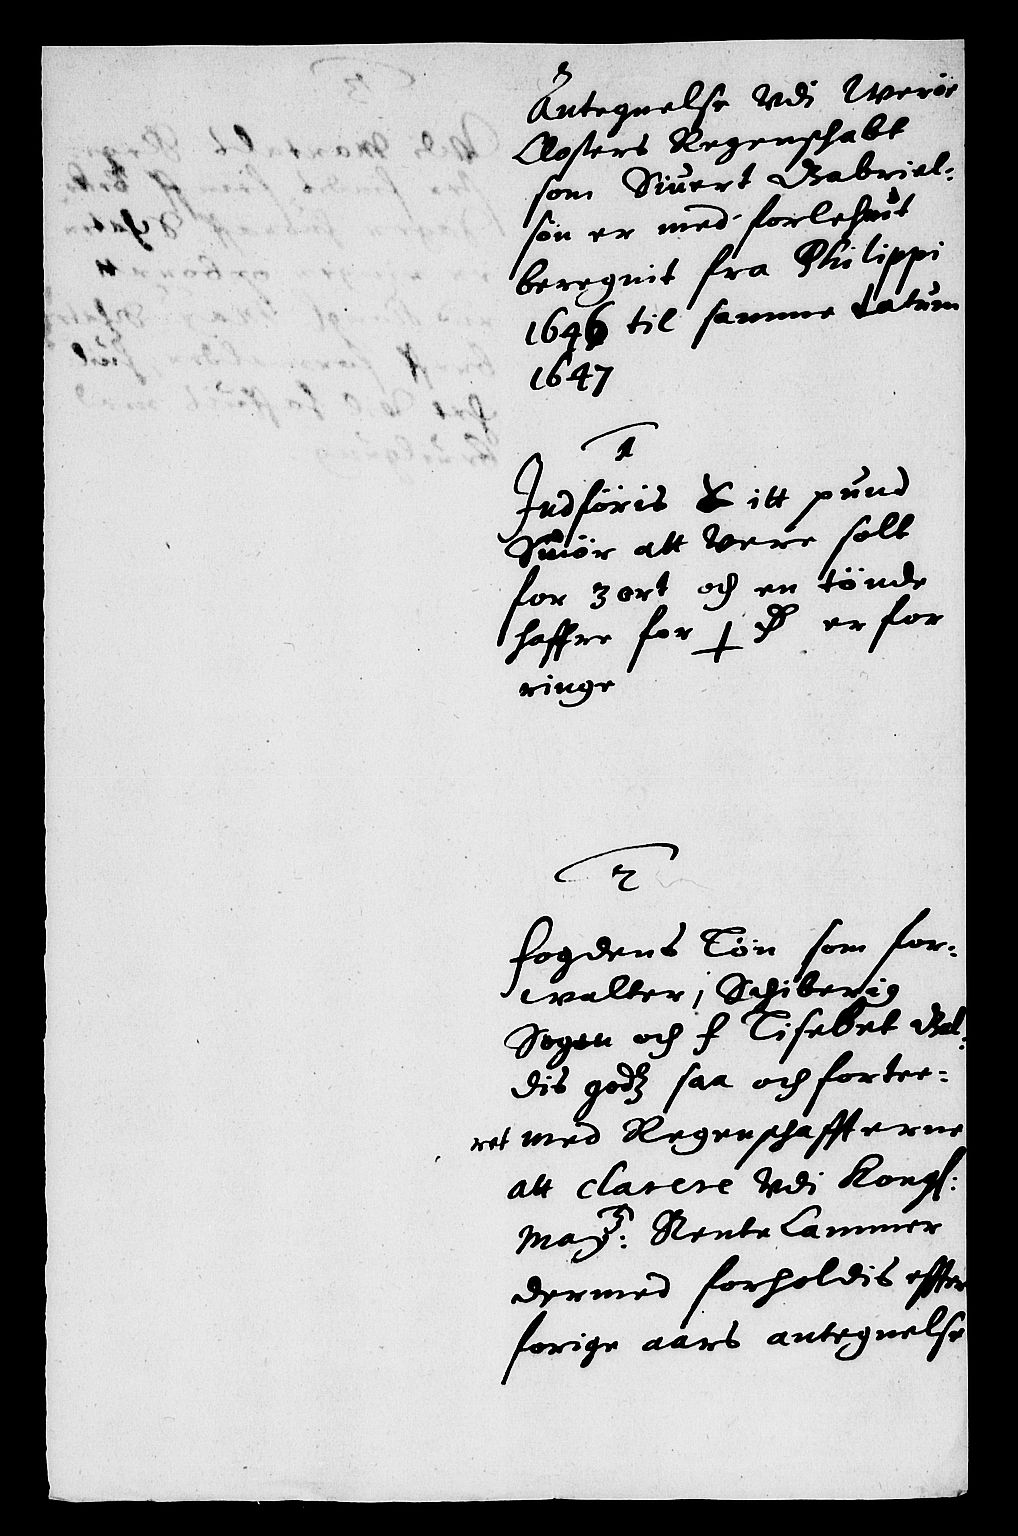 Antegnelse Vdi Werne
Closters Regenschabt
som Siuert Gabriel-
søn er med forlehnt
beregnit fra Philippi
1646 til samme datum
1647
1
Indføris itt pund
Smør att Vere solt
for 3 ort och en tønde
haffre for er for
ringe
2
fogdens Løn som for-
walter i Schiberig
Sogen och f Lisebet Bil-
dis godz saa och forter-
ret med Regenschaffterne
att clarere Vdi Kongl:
May: Rente Cammer
dermed forholdis effter
forige aars antegnelse